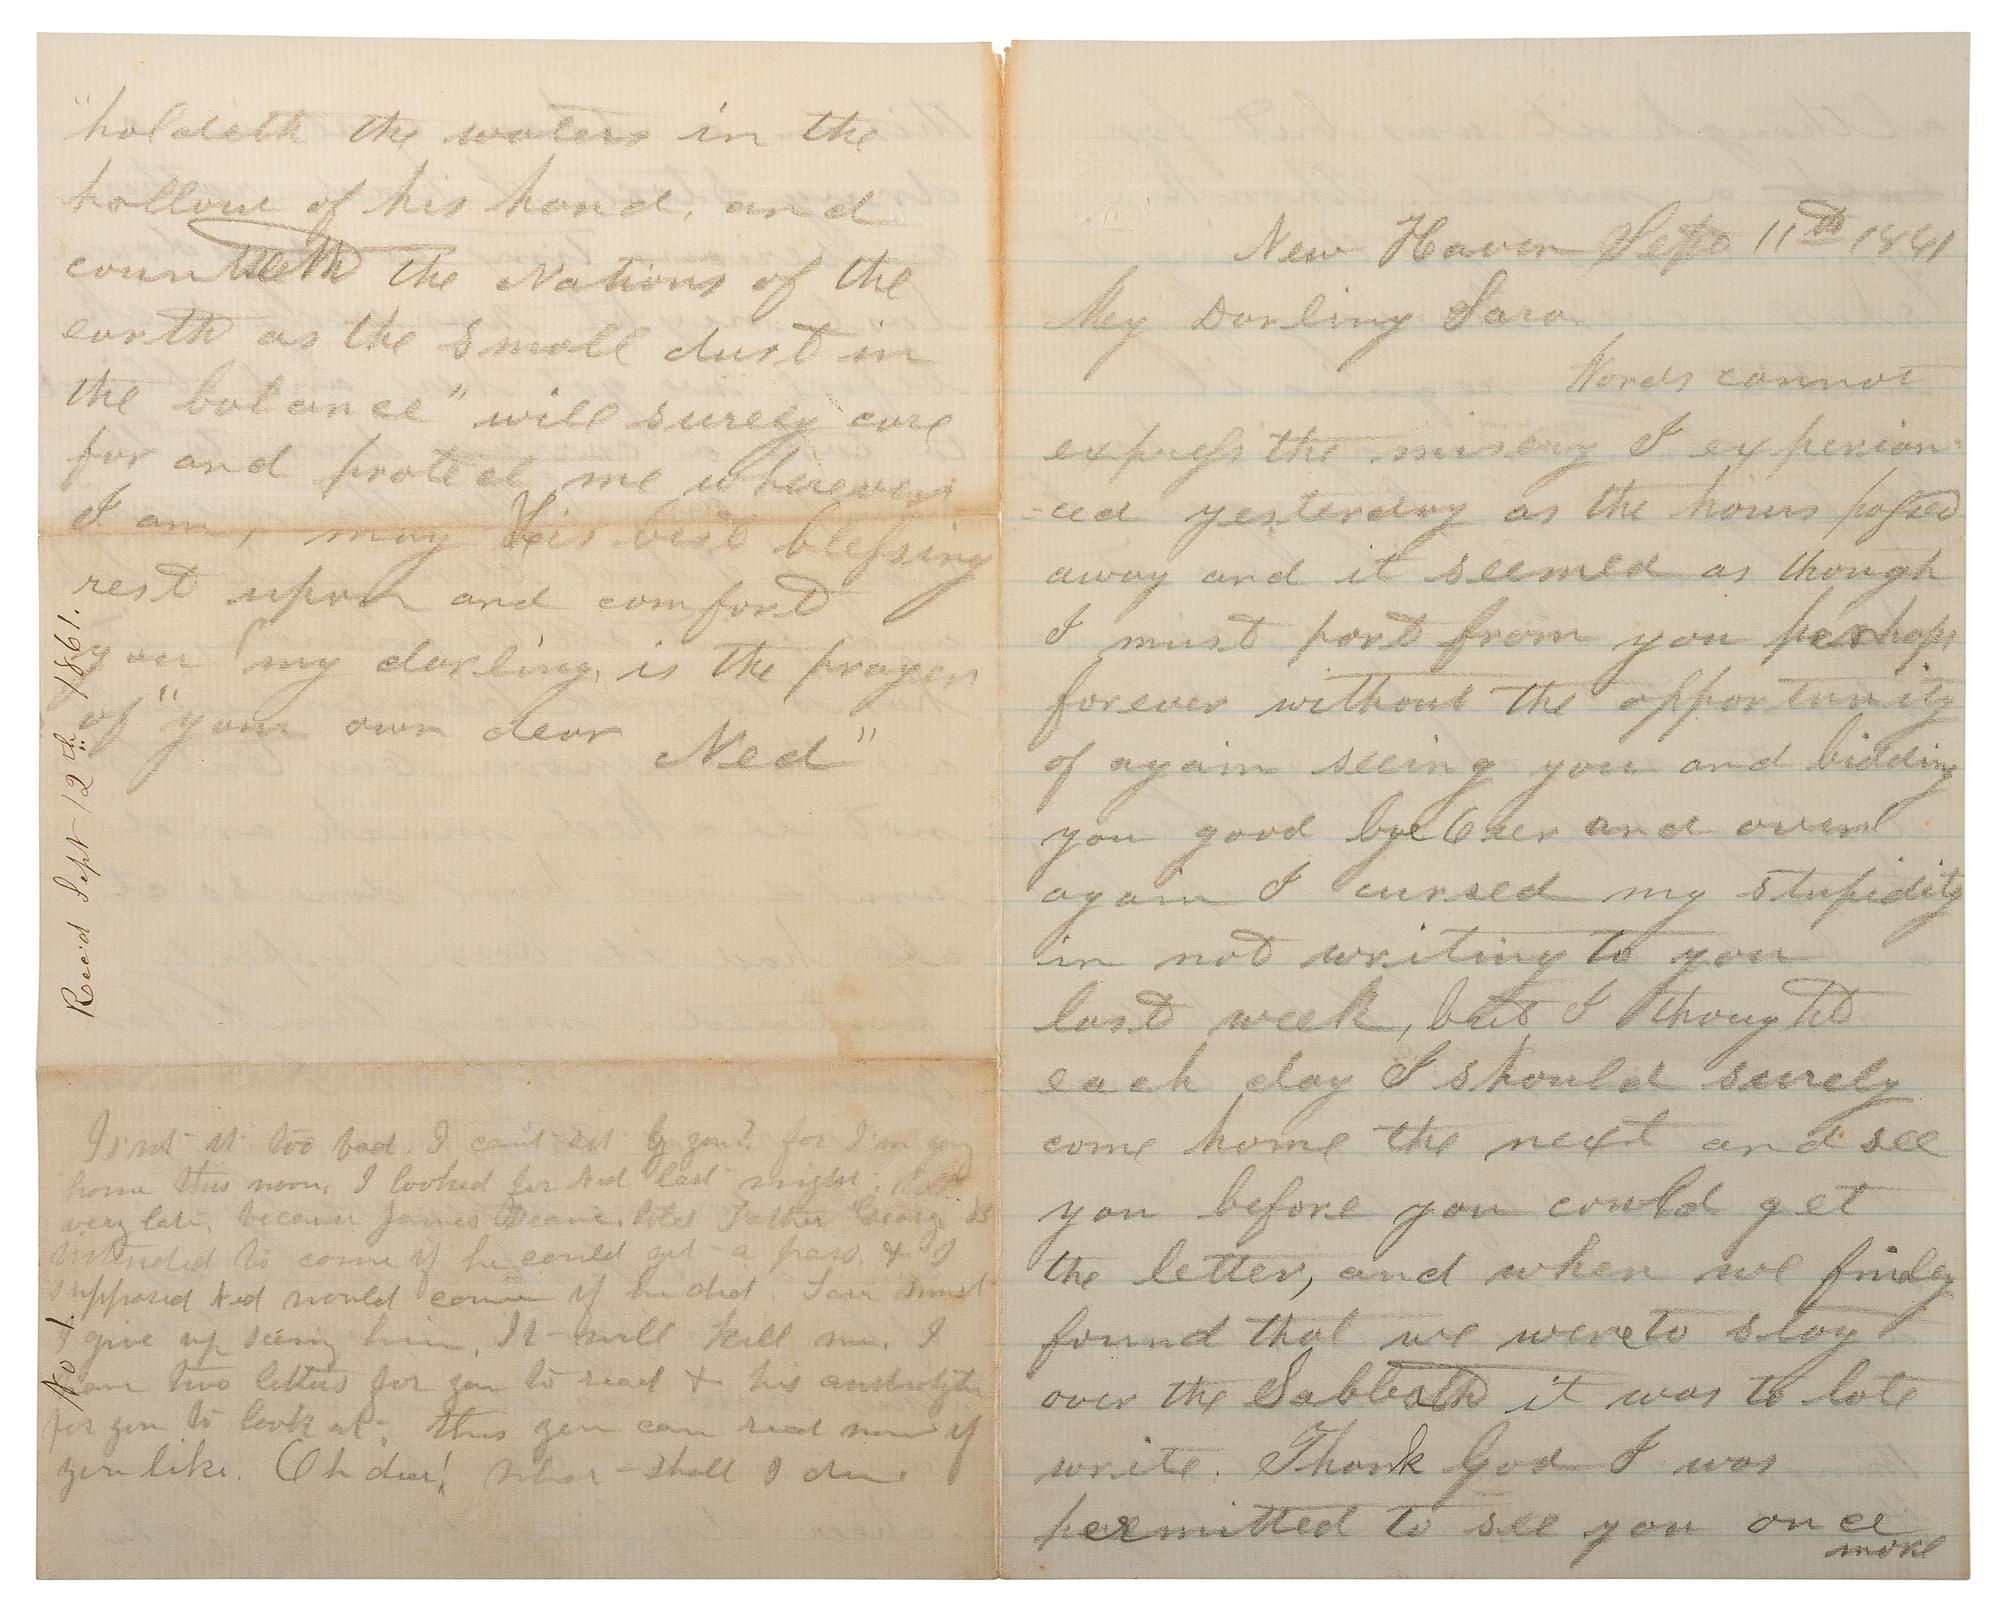 New Haven Sept 11th 1861
My Darling Sara
Words cannot
express the misery I experian-
-ced yesterday as the hours passed
away and it seemed as though
I must part from you perhaps
forever without the opportunity
of again seeing you and bidding
you good bye Over and over
again I cursed my stupidity
in not writing to you
last week, but I thought
each day I should surely
come home the next and see
you before you could get
the letter, and when we finley
found that we were to stay
over the Sabbath it was to late
write. Thank God I was
permitted to see you once
more
"holdeth the waters in the
hollow of his hand, and
counteth the Nations of the
earth as the small dust in
the balance" will surely care
for and protect me wherever
I am, may His best blessing
rest upon and comfort
you my darling, is the prayer
of "your own dear
Ned"
Isn't it too bad. I can't get by you? for I'm
home this noon. I looked for Ned last night
very late, because James told Father George
intended to come if he could get a pass. & I
supposed Ned would come if he did. must
I give up seeing him. It will kill me. I
have two letters for you to read & his
for you to look at. this you can read now if
you like. Oh dear! What shall I do.
Recd Sept 12th 1861.
No 1.